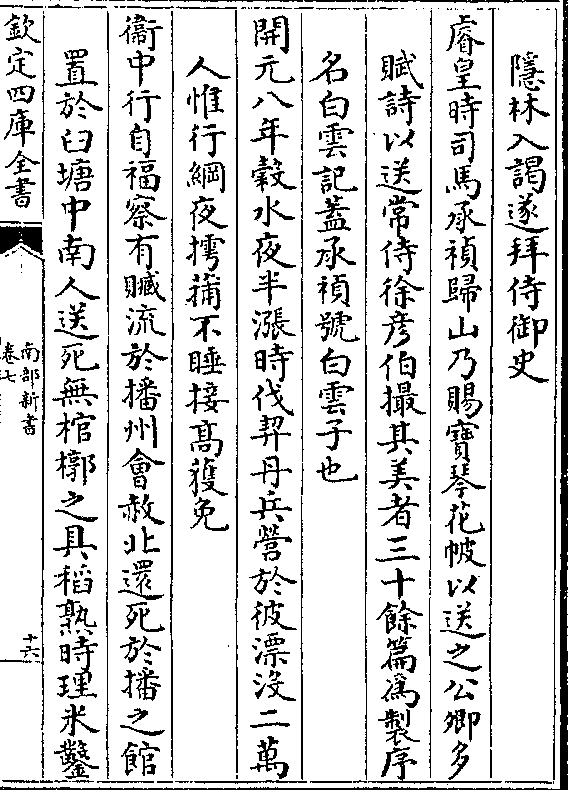 隱林入謁遂拜侍御史
睿皇時司馬承禎歸山乃賜寳琴花帔以送之公卿多
賦詩以送常侍徐彦伯撮其美者三十餘篇為製序
名白雲記蓋承禎號白雲子也
開元八年穀水夜半漲時伐契丹兵營於彼漂没二萬
人惟行綱夜摴蒱不睡接髙獲免
衞中行自福察有贓流於播州會赦北還死於播之館
置於臼塘中南人送死無棺槨之具稻熟時理米鑿
欽定四庫全書
南部新書
卷七
十六